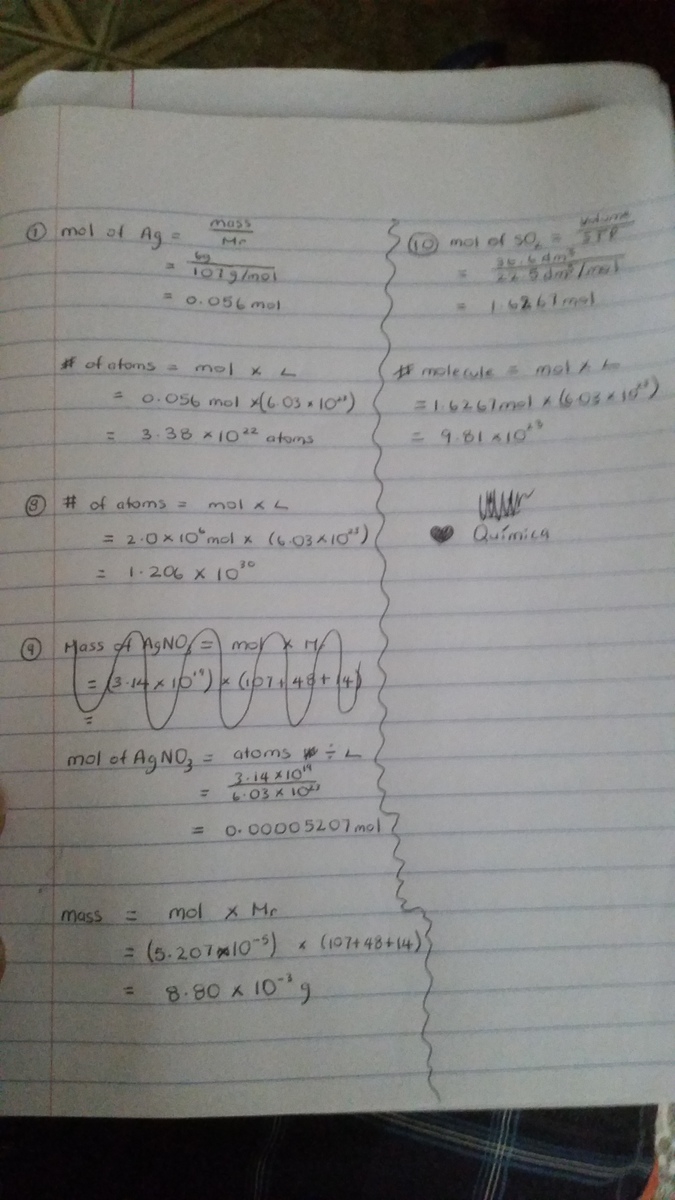 ① mol of Ag = mass
Mr
= 6g
107g/mol
= 0.056 mol
# of atoms = mol x L
= 0.056 mol x(6.03 x 10²³)
= 3.38 x10²² atoms
③ # of atoms = mol x L
= 2.0 x 10⁶ mol x (6.03 x 10²³)
= 1.206 x 10³⁰
④ Mass of AgNO₃ = mol x Mr
= (3.14 x 10¹⁹) x (107+48+14)
=
mol of AgNO₃ = atoms ÷ L
= 3.14 x10¹⁹
6.03 x 10²³
= 0.00005207mol
mass = mol x Mr
= (5.207x10⁻⁵) x (107+48+14)
= 8.80 x 10⁻³ g
⑩ mol of SO₂ = volume
STP
= 36.6 dm³
22.5 dm³/mol
= 1.6267mol
# molecule = mol x L
= 1.6267mol x (6.03 x 10²³)
= 9.81 x10²³
♥ Química